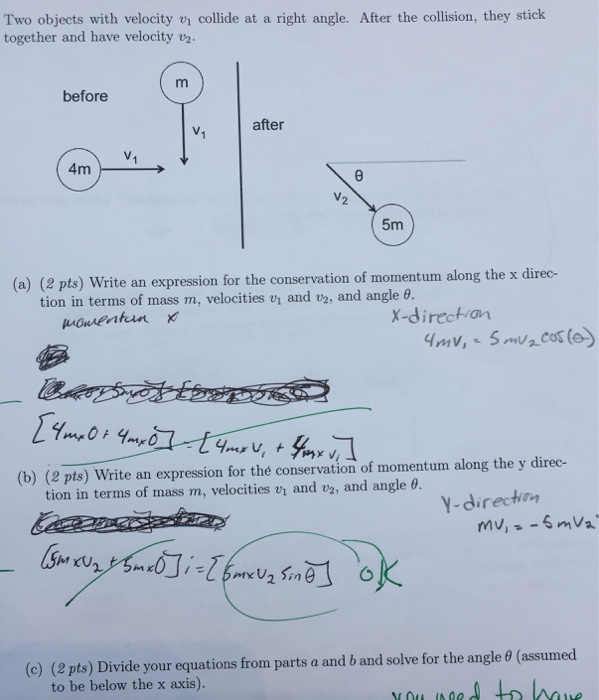 Two objects with velocity v₁ collide at a right angle. After the collision, they stick
together and have velocity v₂.
before
m
v₁
after
4m
v₁
θ
v₂
5m
(a) (2 pts) Write an expression for the conservation of momentum along the x direc-
tion in terms of mass m, velocities v₁ and v₂, and angle θ.
momentum x
x-direction
4mv₁ = 5mv₂cos(θ)
[4mx0 + 4mx0] = [4mxv₁ + 4mxv₁]
(b) (2 pts) Write an expression for the conservation of momentum along the y direc-
tion in terms of mass m, velocities v₁ and v₂, and angle θ.
Y-direction
mv₁ = -5mv₂
[5mxv₂ + 5mx0]i = [5mxv₂ sinθ] OK
(c) (2 pts) Divide your equations from parts a and b and solve for the angle θ (assumed
to be below the x axis).
you need to have